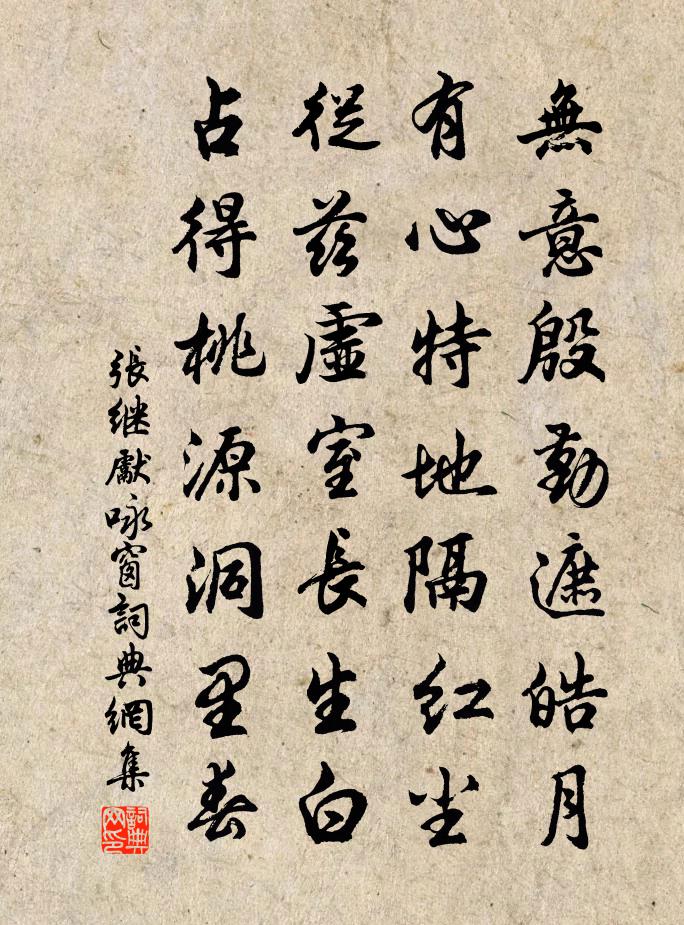 無意殷勤遮皓月
有心特地隔紅尘
從茲虛室長生白
占得桃源洞里春
張继獻咏窗詞典網集
詞典网印